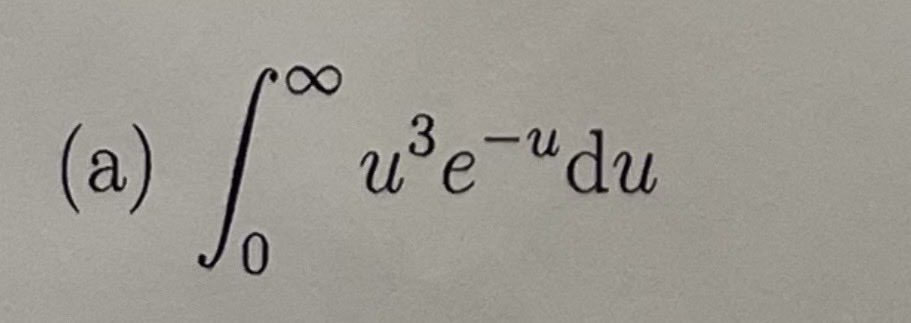 (a) $\int_0^\infty u^3 e^{-u} \mathrm{d}u$